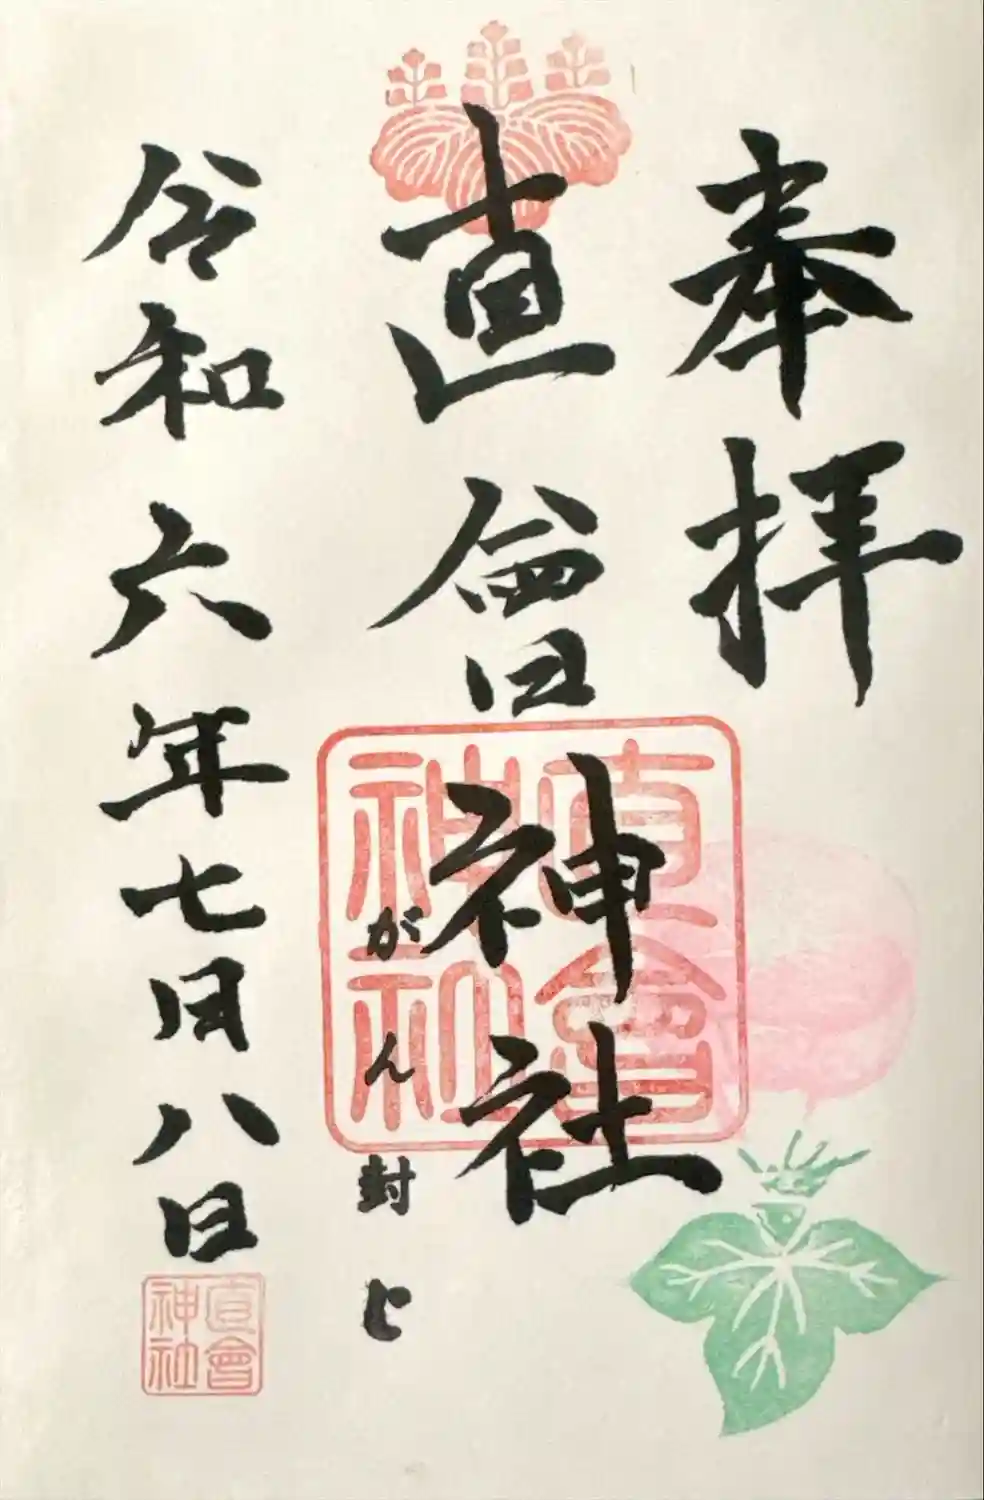 奉拝
直會神社
直會神社
がん封じ
令和六年七月八日
直會神社